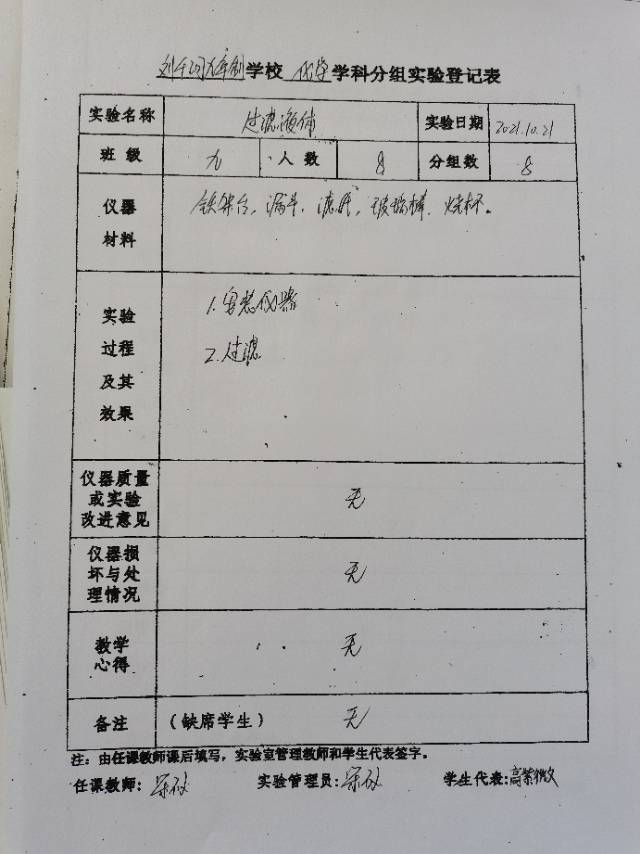 学校 化学 学科分组实验登记表
实验名称 过滤液体 实验日期 2021.10.21
班级 九 人数 8 分组数 8
仪器材料 铁架台，漏斗，滤纸，玻璃棒，烧杯。
实验过程及其效果
1.安装仪器
2.过滤
仪器质量
或实验
改进意见 无
仪器损
坏与处
理情况 无
教学
心得 无
备注 (缺席学生) 无
注：由任课教师课后填写，实验室管理教师和学生代表签字。
任课教师: 实验管理员: 学生代表: